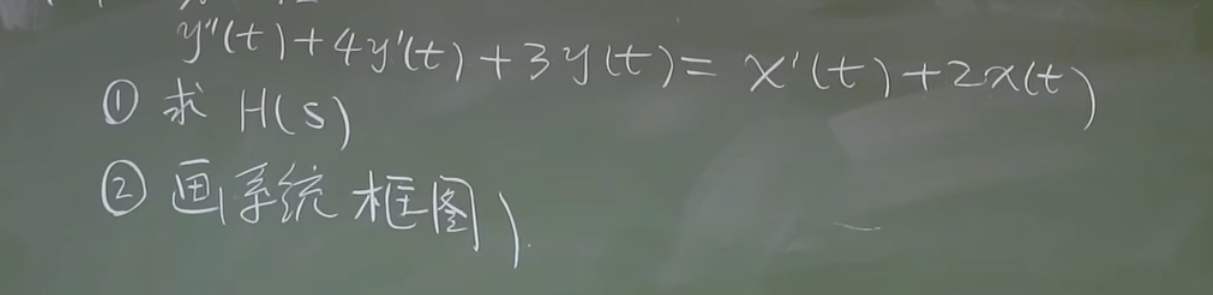 y''(t)+4y'(t)+3y(t)=x'(t)+2x(t)
① 求 H(s)
② 画系统框图)